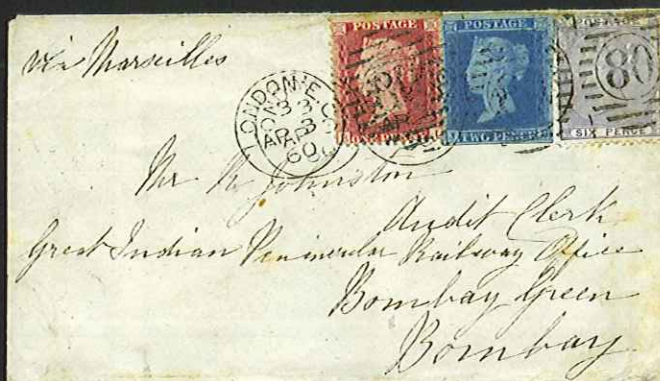 via Marseilles
POSTAGE
POSTAGE
POSTAGE
TWO PENCE
SIX PENCE
80
LONDON E.C
AP 3
60
Mr R Johnston
Audit Clerk
Great Indian Peninsular Railway Office
Bombay Green
Bombay